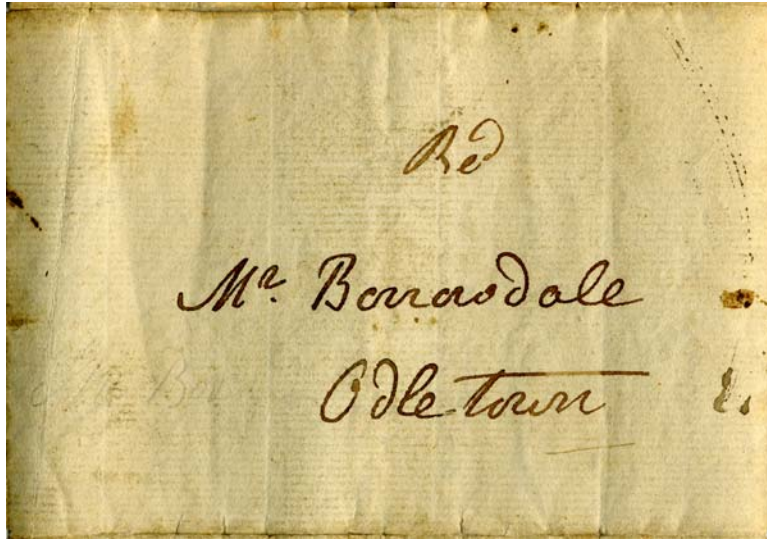 Red
Mr. Borrowdale
Odletown